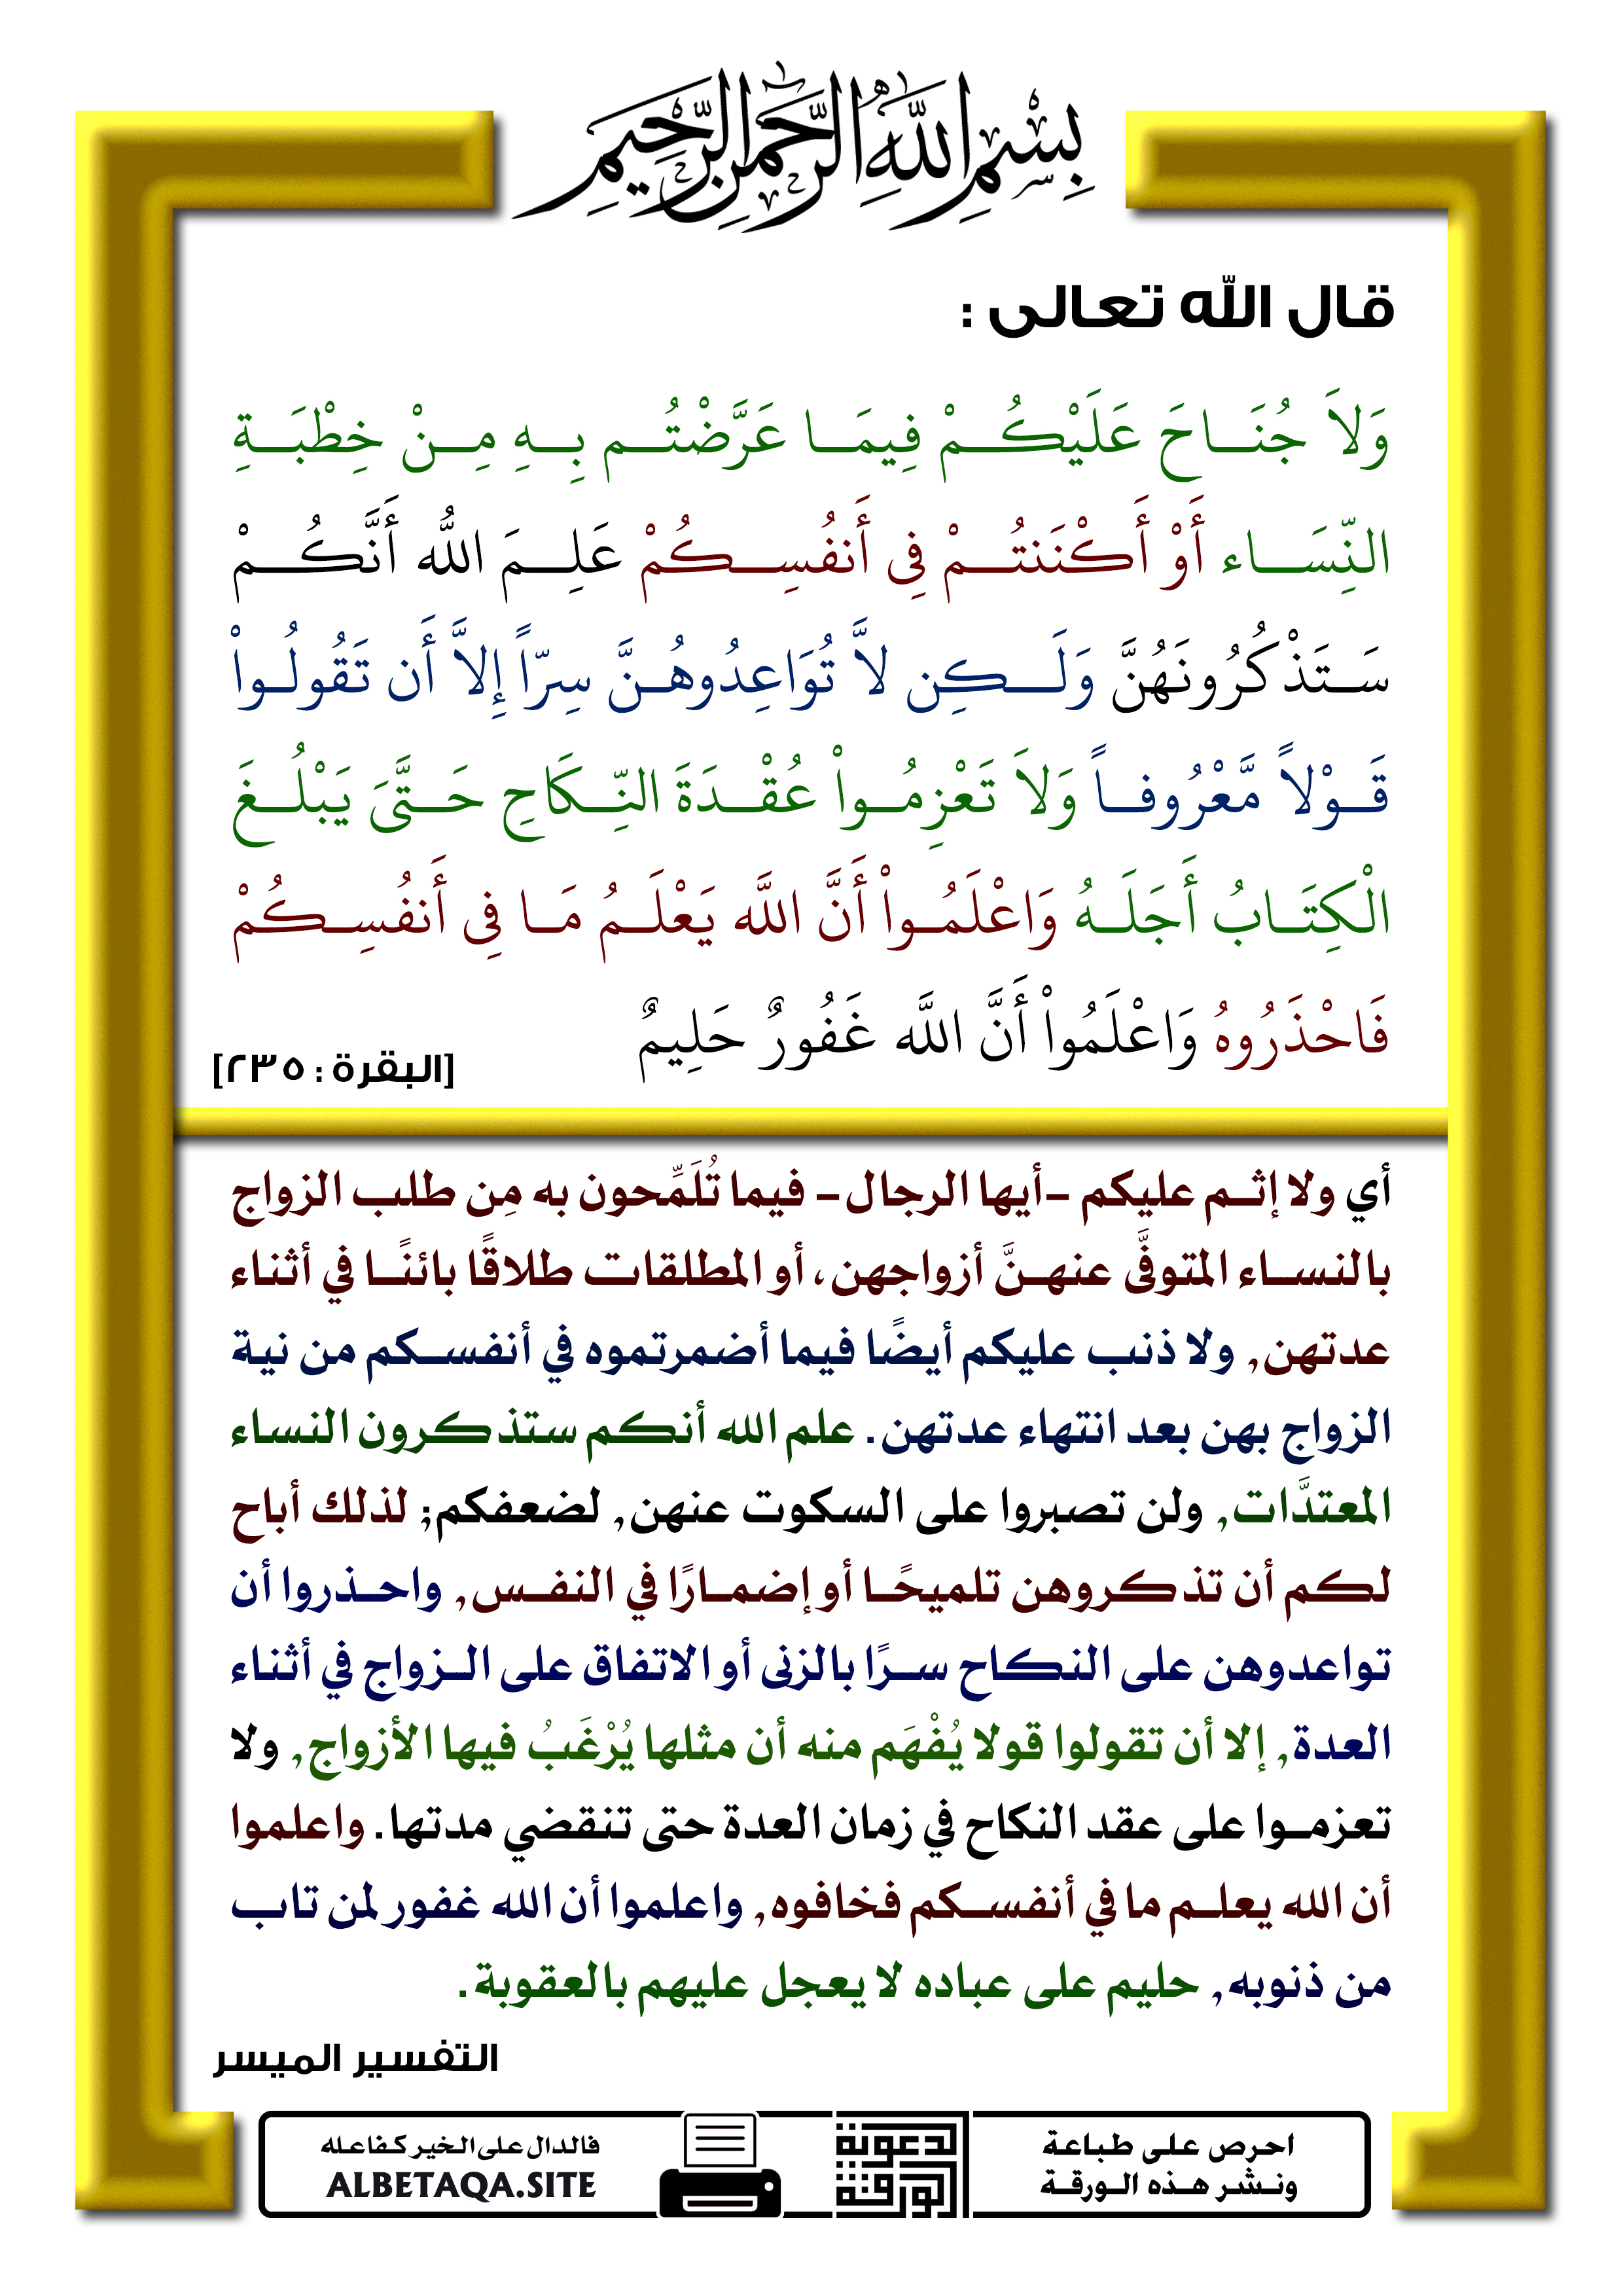 بِسْمِ اللَّهِ الرَّحْمَنِ الرَّحِيمِ
قال الله تعالى :
وَلاَ جُنَاحَ عَلَيْكُمْ فِيمَا عَرَّضْتُم بِهِ مِنْ خِطْبَةِ
النِّسَاء أَوْ أَكْنَنتُمْ فِي أَنفُسِكُمْ عَلِمَ اللّهُ أَنَّكُمْ
سَتَذْكُرُونَهُنَّ وَلَكِن لاَّ تُوَاعِدُوهُنَّ سِرّاً إِلاَّ أَن تَقُولُواْ
قَوْلاً مَّعْرُوفاً وَلاَ تَعْزِمُواْ عُقْدَةَ النِّكَاحِ حَتَّىَ يَبْلُغَ
الْكِتَابُ أَجَلَهُ وَاعْلَمُواْ أَنَّ اللّهَ يَعْلَمُ مَا فِي أَنفُسِكُمْ
فَاحْذَرُوهُ وَاعْلَمُواْ أَنَّ اللّهَ غَفُورٌ حَلِيمٌ
[البقرة : ٢٣٥]
أي ولا إثم عليكم -أيها الرجال- فيما تُلَمِّحون به مِن طلب الزواج
بالنساء المتوفَّى عنهنَّ أزواجهن، أو المطلقات طلاقًا بائنًا في أثناء
عدتهن, ولا ذنب عليكم أيضًا فيما أضمرتموه في أنفسكم من نية
الزواج بهن بعد انتهاء عدتهن. علم الله أنكم ستذكرون النساء
المعتدَّات, ولن تصبروا على السكوت عنهن, لضعفكم; لذلك أباح
لكم أن تذكروهن تلميحًا أو إضمارًا في النفس, واحذروا أن
تواعدوهن على النكاح سرًا بالزنى أو الاتفاق على الزواج في أثناء
العدة, إلا أن تقولوا قولا يُفْهَم منه أن مثلها يُرْغَبُ فيها الأزواج, ولا
تعزموا على عقد النكاح في زمان العدة حتى تنقضي مدتها. واعلموا
أن الله يعلم ما في أنفسكم فخافوه, واعلموا أن الله غفور لمن تاب
من ذنوبه, حليم على عباده لا يعجل عليهم بالعقوبة.
التفسير الميسر
احرص على طباعة
ونشر هذه الورقة
الورقة
الدعوية
فالدال على الخير كفاعله
ALBETAQA.SITE